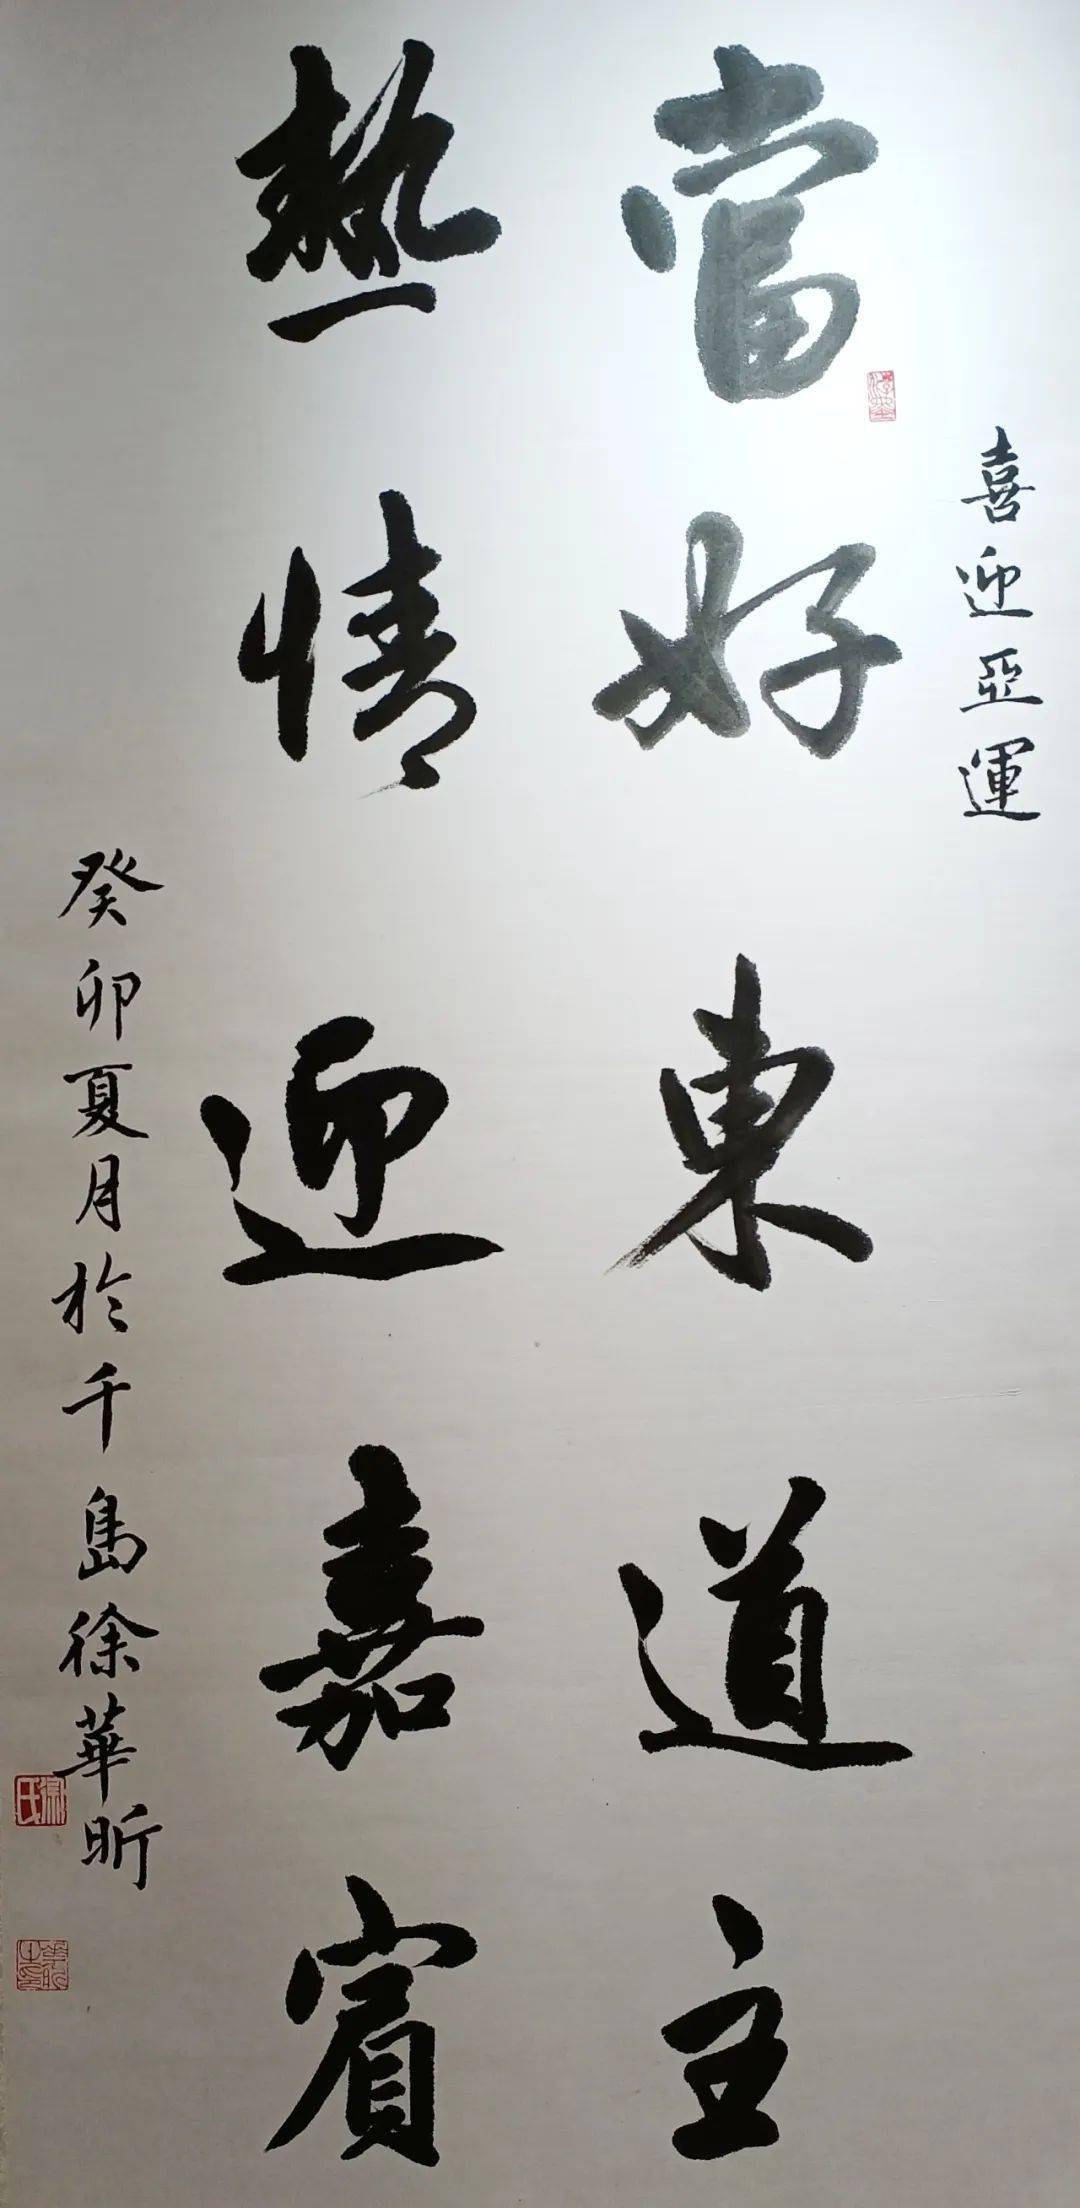 喜迎亞運
當好東道主
熱情迎嘉賓
癸卯夏月於千島徐華昕